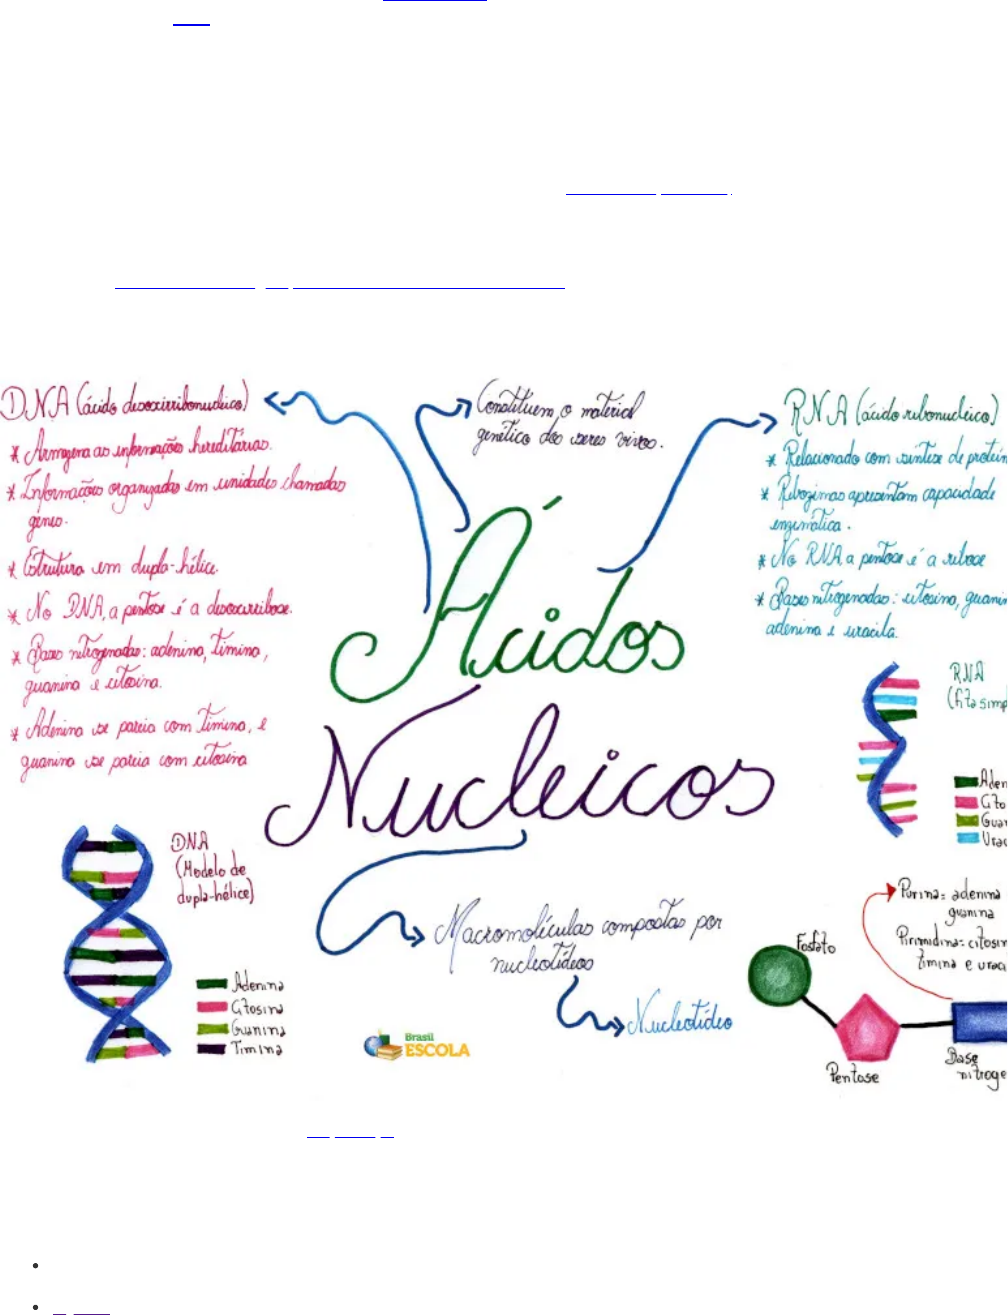 DNA (ácido desoxirribonucleico)
* Armazena as informações hereditárias.
* Informações organizadas em unidades chamadas
genes.
* Estrutura em dupla-hélice.
* No DNA, a pentose é a desoxirribose.
* Bases nitrogenadas: adenina, timina,
guanina e citosina.
* Adenina se pareia com timina, e
guanina se pareia com citosina
Constituem o material
genético dos seres vivos.
RNA (ácido ribonucleico)
* Relacionado com síntese de proteín
* Ribozimas apresentam capacidade
enzimática.
* No RNA a pentose é a ribose
* Bases nitrogenadas: citosina, guanin
adenina e uracila.
Ácidos
Nucleicos
RNA
(fita simp
Aden
Cito
Guan
Urac
DNA
(Modelo de
dupla-hélice)
Adenina
Citosina
Guanina
Timina
Macromoléculas compostas por
nucleotídeos
Nucleotídeo
Brasil
ESCOLA
Purina= adenina
guanina
Pirimidina= citosin
timina e uraci
Fosfato
Pentose
Base
nitroge